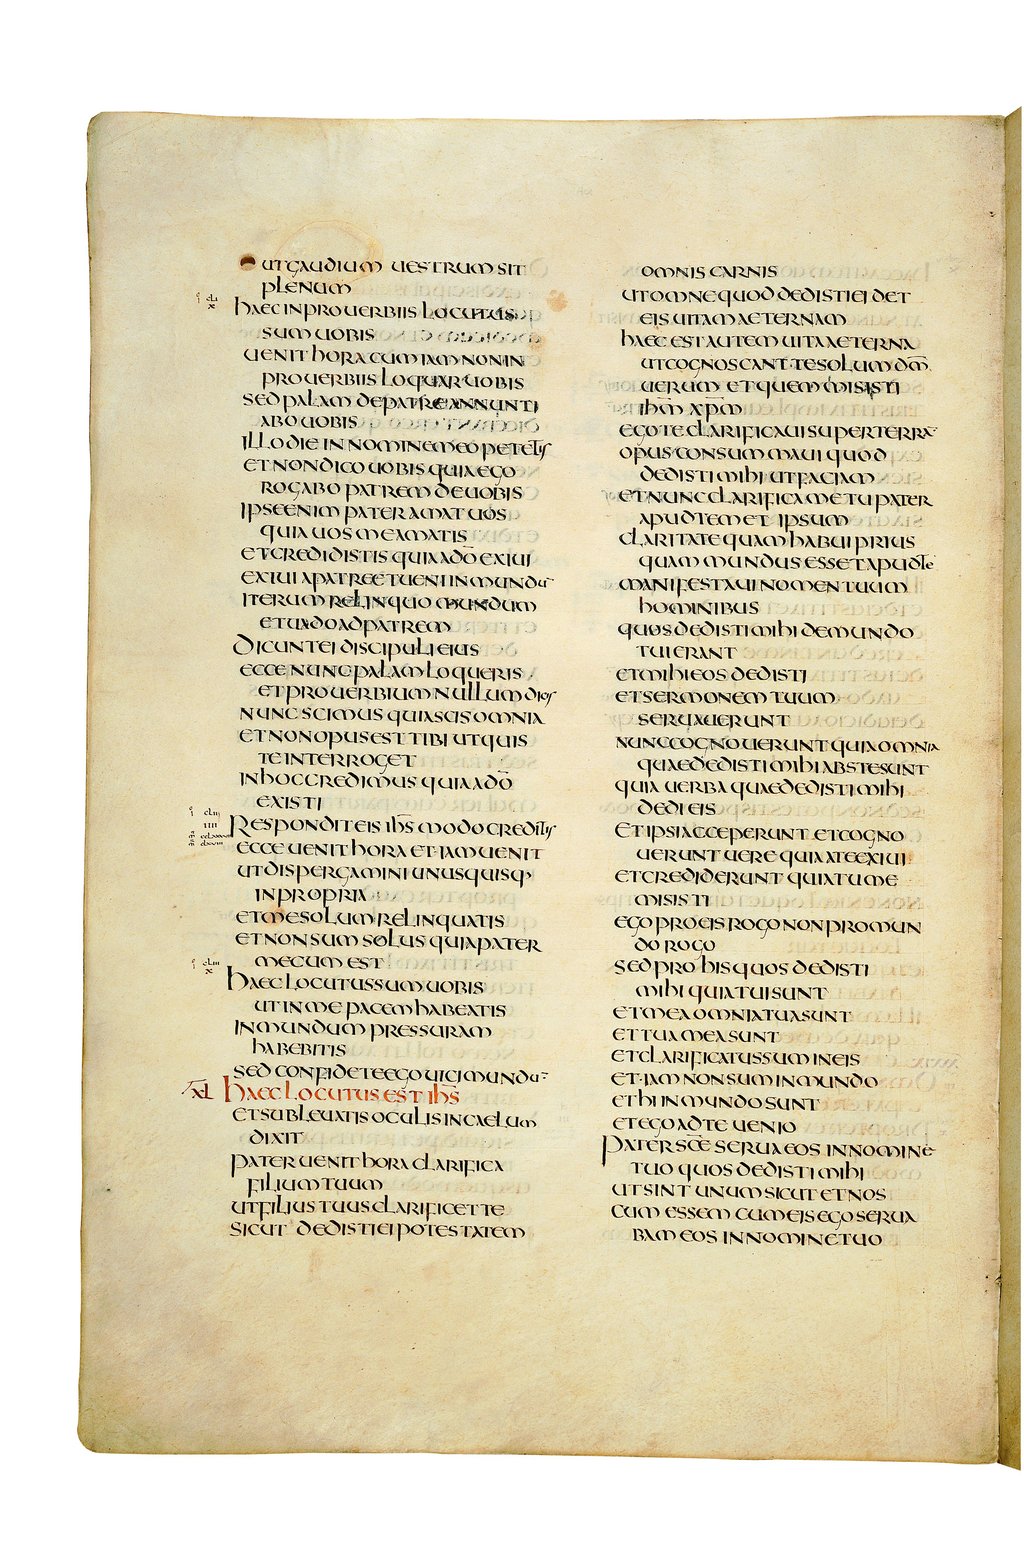 ut gaudium uestrum sit
plenum
haec in prouerbiis locutus
sum uobis
uenit hora cum iam non in
prouerbiis loquar uobis
sed palam de patre annunti
abo uobis
illo die in nomine meo petetis
et non dico uobis quia ego
rogabo patrem de uobis
ipse enim pater amat uos
quia uos me amatis
et credidistis quia a dō exiui
exiui a patre et ueni in mundū
iterum relinquo mundum
et uado ad patrem
dicunt ei discipuli eius
ecce nunc palam loqueris
et prouerbium nullum dicis
nunc scimus quia scis omnia
et non opus est tibi ut quis
te interroget
in hoc credimus quia a dō
existi
Respondit eis ihs̄ modo creditis
ecce uenit hora et iam uenit
ut dispergamini unusquisq·
in propria
et me solum relinquatis
et non sum solus quia pater
mecum est
haec locutus sum uobis
ut in me pacem habeatis
in mundum pressuram
habebitis
sed confidete ego uici mundū
XL haec locutus est ihs̄
et subleuatis oculis in caelum
dixit
pater uenit hora clarifica
filium tuum
ut filius tuus clarificet te
sicut dedisti ei potestatem
omnis carnis
ut omne quod dedisti ei det
eis uitam aeternam
haec est autem uita aeterna
ut cognoscant te solum dm̄
uerum et quem misisti
ihm̄ xpm̄
ego te clarificaui super terrā
opus consummaui quod
dedisti mihi ut faciam
et nunc clarifica me tu pater
apud temet ipsum
claritate quam habui prius
quam mundus esset apud te
manifestaui nomen tuum
hominibus
quos dedisti mihi de mundo
tui erant
et mihi eos dedisti
et sermonem tuum
seruauerunt
nunc cognouerunt quia omnia
quae dedisti mihi abs te sunt
quia uerba quae dedisti mihi
dedi eis
et ipsi acceperunt et cogno
uerunt uere quia a te exiui
et crediderunt quia tu me
misisti
ego pro eis rogo non pro mun
do rogo
sed pro his quos dedisti
mihi quia tui sunt
et mea omnia tua sunt
et tua mea sunt
et clarificatus sum in eis
et iam non sum in mundo
et hi in mundo sunt
et ego ad te uenio
pater sc̄e serua eos in nomine
tuo quos dedisti mihi
ut sint unum sicut et nos
cum essem cum eis ego serua
bam eos in nomine tuo